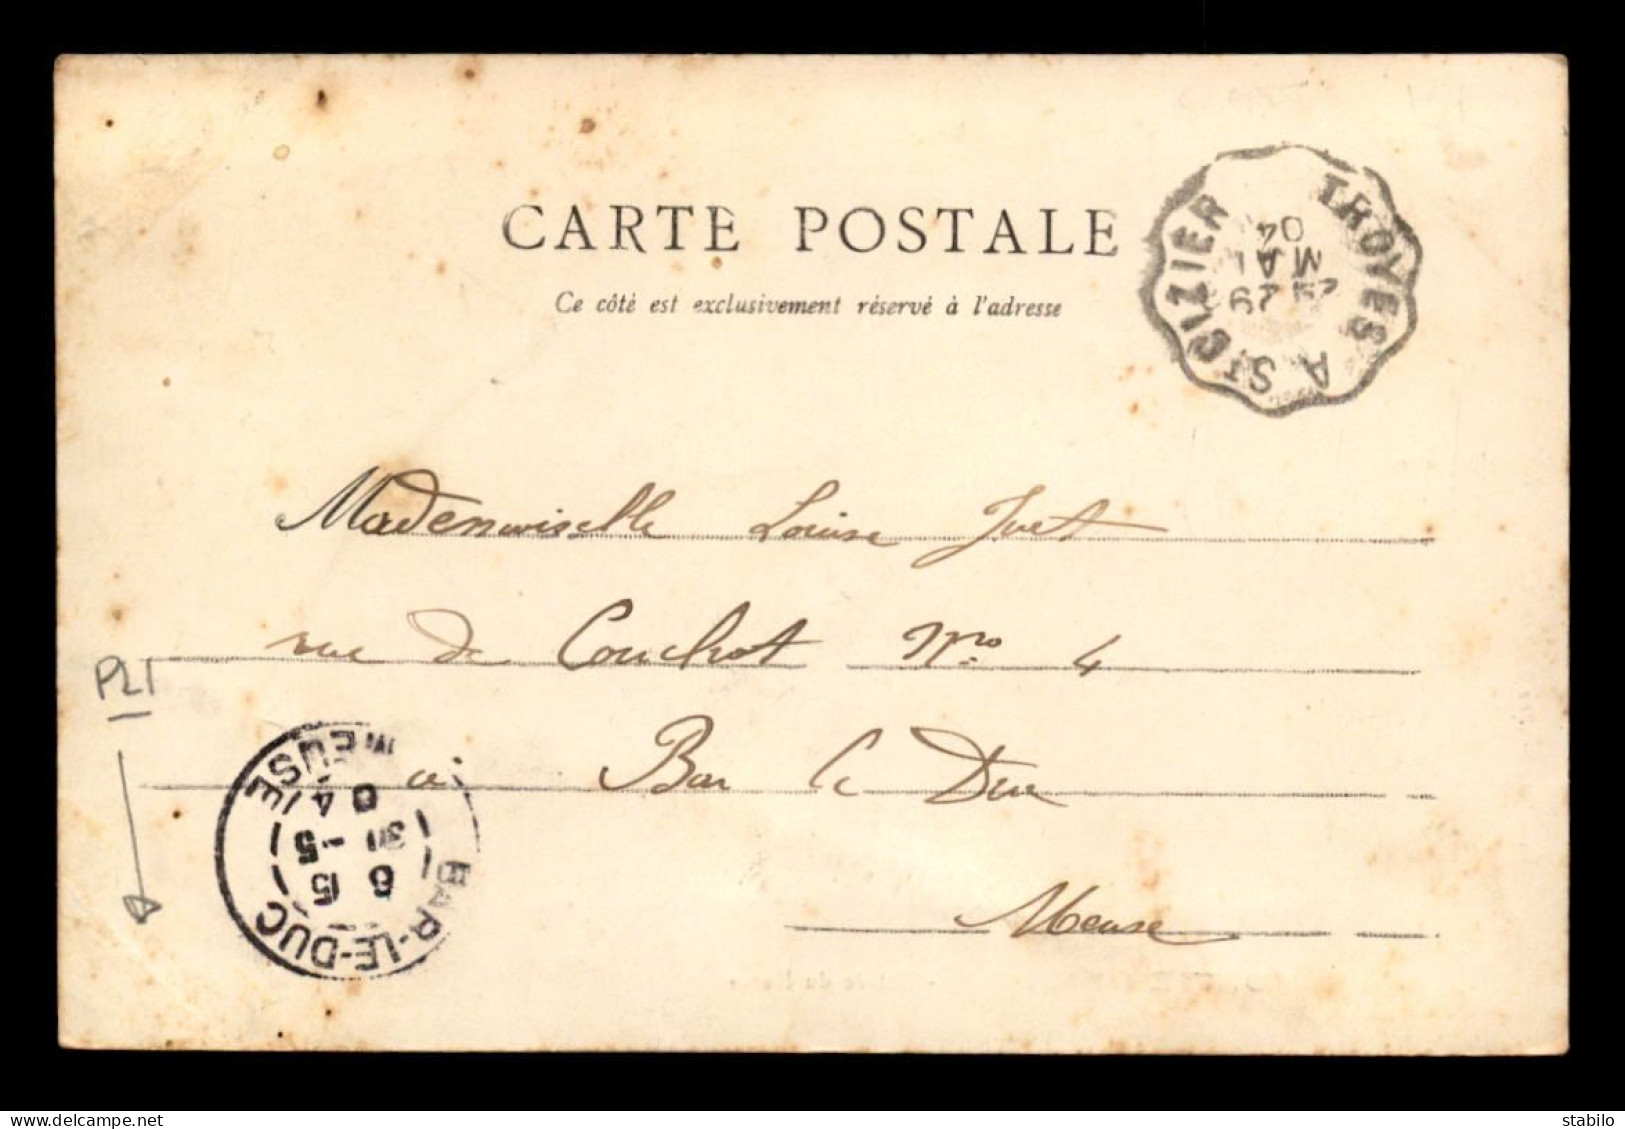 CARTE POSTALE
Ce côté est exclusivement réservé à l'adresse
TROYES A St DIZIER
29
MAI
04
Mademoiselle Louise Juet
rue de Couchot Nro 4
a Bar le Duc
Meuse
PLI
BAR-LE-DUC
MEUSE
6 15
31 -5
04
stabilo
www.delcampe.net